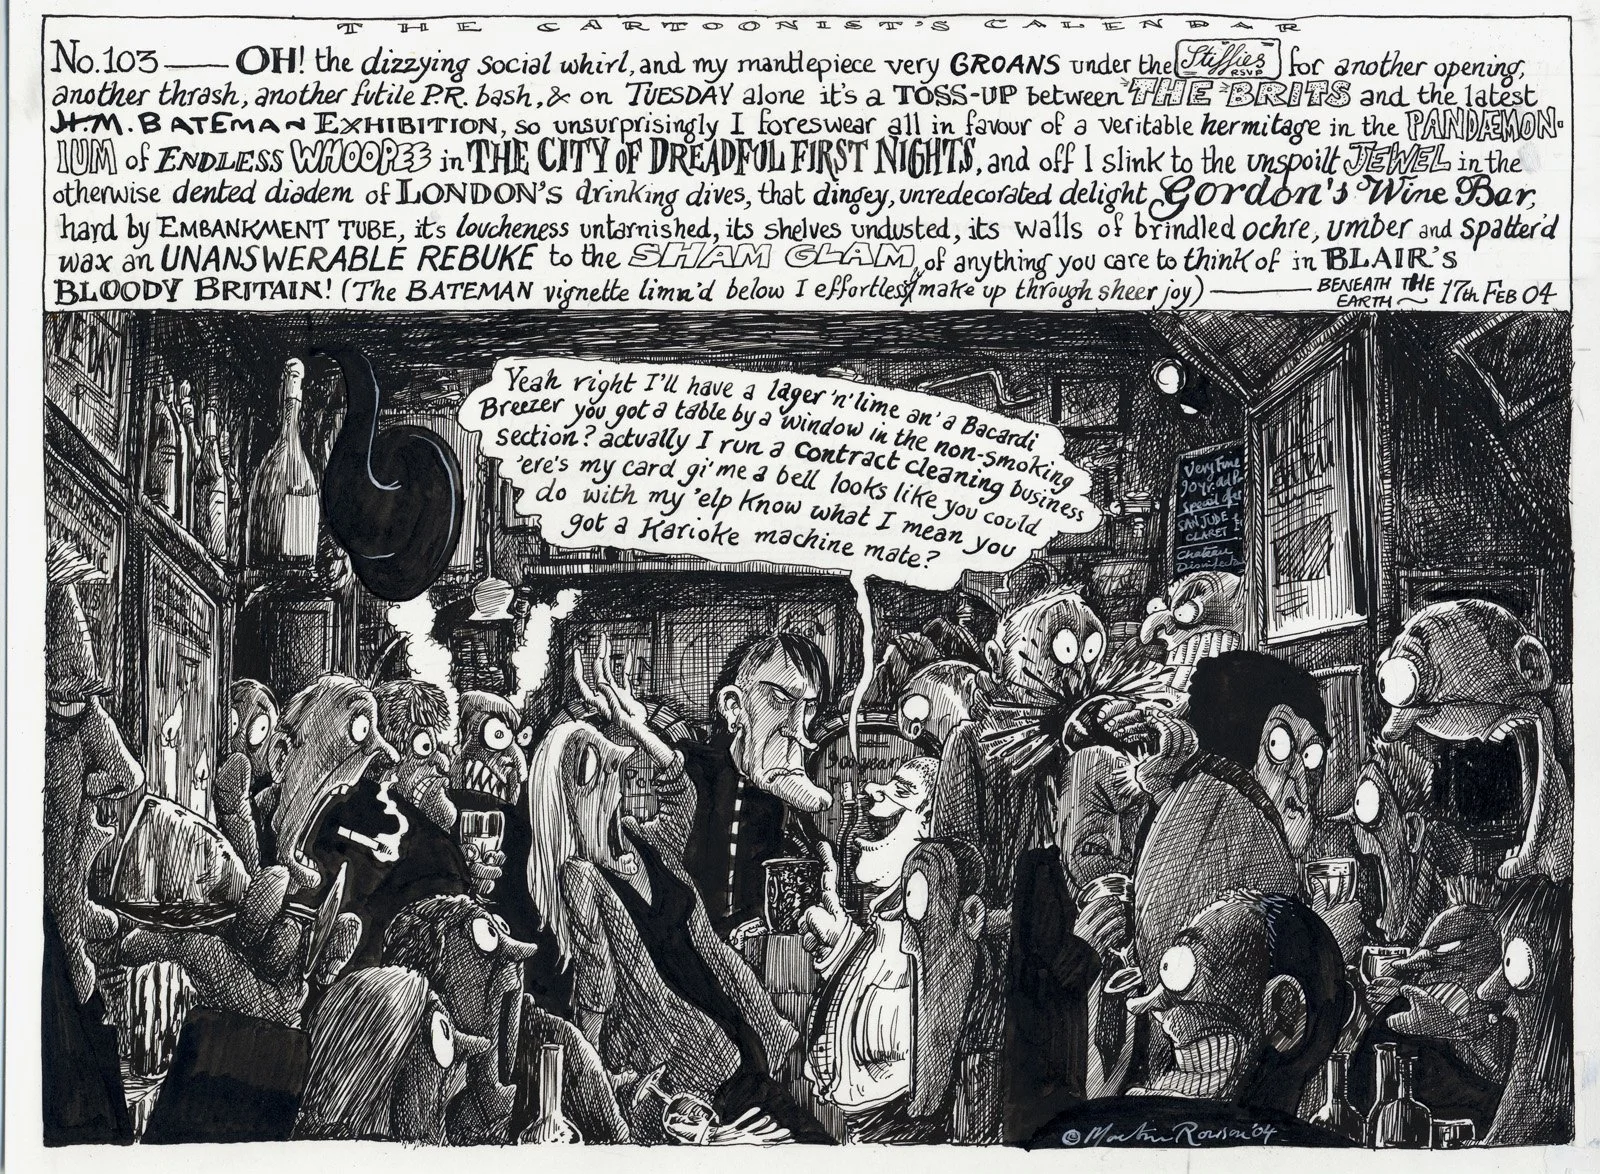 THE CARTOONIST'S CALENDAR
No. 103 — OH! the dizzying social whirl, and my mantlepiece very GROANS under the Stiffies RSVP for another opening,
another thrash, another futile P.R. bash, & on TUESDAY alone it's a TOSS-UP between THE BRITS and the latest
H.M. BATEMAN EXHIBITION, so unsurprisingly I foreswear all in favour of a veritable hermitage in the PANDÆMON-
IUM of ENDLESS WHOOPEE in THE CITY OF DREADFUL FIRST NIGHTS, and off I slink to the unspoilt JEWEL in the
otherwise dented diadem of LONDON'S drinking dives, that dingey, unredecorated delight Gordon's Wine Bar,
hard by EMBANKMENT TUBE, it's loucheness untarnished, its shelves undusted, its walls of brindled ochre, umber and spatter'd
wax an UNANSWERABLE REBUKE to the SHAM GLAM of anything you care to think of in BLAIR'S
BLOODY BRITAIN! (The BATEMAN vignette limn'd below I effortlessly make up through sheer joy) — BENEATH THE
EARTH ~ 17th FEB 04
Yeah right I'll have a lager 'n' lime an' a Bacardi
Breezer you got a table by a window in the non-smoking
section? actually I run a contract cleaning business
'ere's my card gi' me a bell looks like you could
do with my 'elp know what I mean you
got a Karioke machine mate?
DAY
Very Fine
special offer
SAN JUDE
CLARET
Chateau
year
© Martin Rowson '04